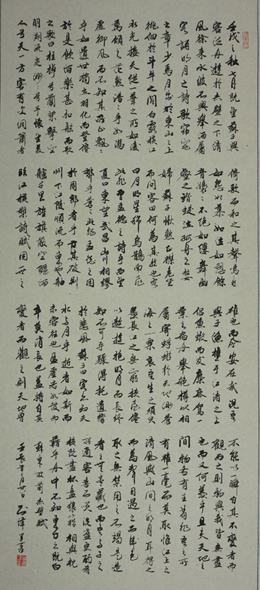 壬戌之秋七月既望蘇子與
客泛舟遊於赤壁之下清
風徐來水波不興舉酒屬
客誦明月之詩歌窈窕
之章少焉月出於東山之上
徘徊於斗牛之間白露橫江
水光接天縱一葦之所如凌
萬頃之茫然浩浩乎如馮
虛御風而不知其所止飄飄
乎如遺世獨立羽化而登僊
於是飲酒樂甚扣舷而歌
之歌曰桂棹兮蘭槳擊空
明兮泝流光渺渺兮予懷望美
人兮天一方客有吹洞簫者
倚歌而和之其聲嗚嗚
然如怨如慕如泣如訴餘
音嫋嫋不絕如縷舞幽
壑之潛蛟泣孤舟之嫠
婦蘇子愀然正襟危坐
而問客曰何為其然也客
曰月明星稀烏鵲南飛
此非曹孟德之詩乎西望
夏口東望武昌山川相繆
鬱乎蒼蒼此非孟德之困
於周郎者乎方其破荊
州下江陵順流而東也舳
艫千里旌旗蔽空釃酒
臨江橫槊賦詩固一世之
雄也而今安在哉況吾
與子漁樵於江渚之上
侶魚蝦而友麋鹿駕一
葉之扁舟舉匏樽以相
屬寄蜉蝣於天地渺滄
海之一粟哀吾生之須臾
羨長江之無窮挾飛僊
以遨遊抱明月而長終
知不可乎驟得託遺響
於悲風蘇子曰客亦知夫
水與月乎逝者如斯而
未嘗往也盈虛者如彼而
卒莫消長也蓋將自其
變者而觀之則天地曾
不能以一瞬自其不變者而
觀之則物與我皆無盡
也而又何羨乎且夫天地之
間物各有主苟非吾之所
有雖一毫而莫取惟江上之
清風與山間之明月耳得之
而為聲目遇之而成色
取之無禁用之不竭是造
物者之無盡藏也而吾與子
之所共適客喜而笑洗盞更酌
肴核既盡杯盤狼藉相與枕
藉乎舟中不知東方之既白
蘇東坡前赤壁賦
壬辰年